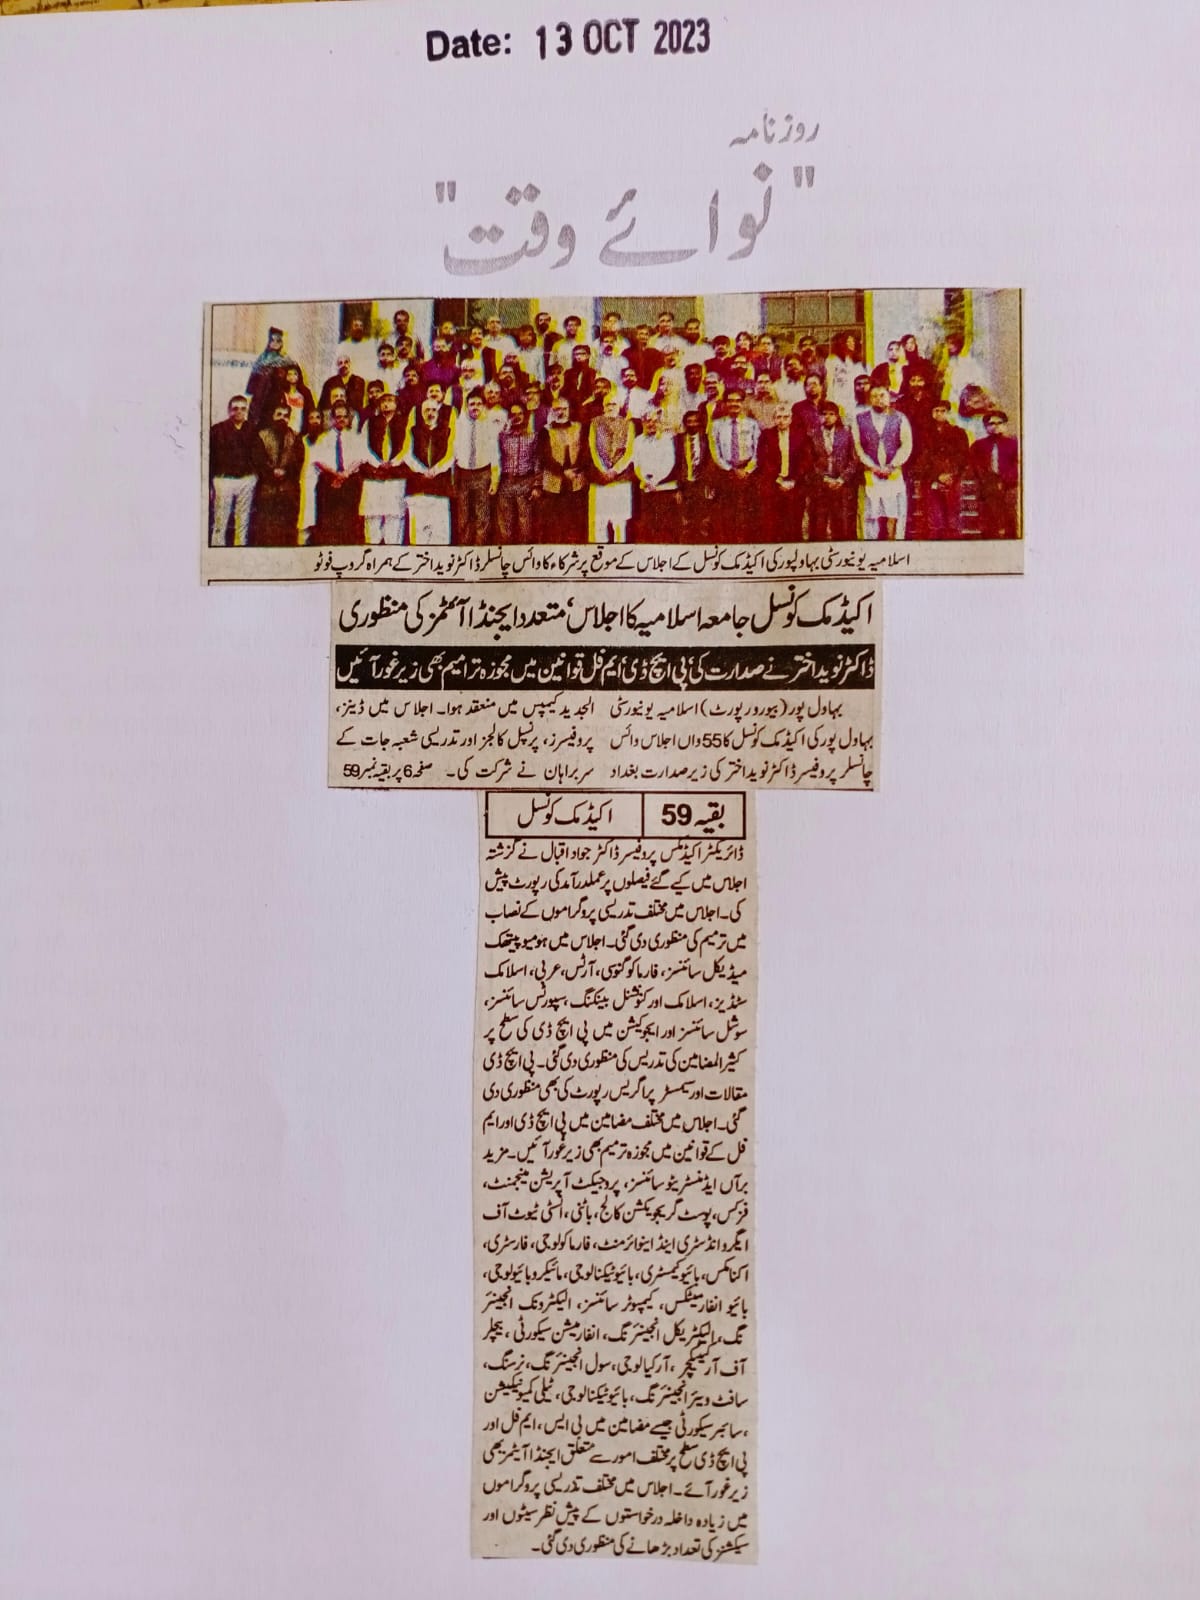 Date: 13 OCT 2023
روزنامہ
"نوائے وقت"
اسلامیہ یونیورسٹی بہاولپور کی اکیڈمک کونسل کے اجلاس کے موقع پر شرکاء کا وائس چانسلر ڈاکٹر نوید اختر کے ہمراہ گروپ فوٹو
اکیڈمک کونسل جامعہ اسلامیہ کا اجلاس، متعدد ایجنڈا آئٹمز کی منظوری
ڈاکٹر نوید اختر نے صدارت کی، پی ایچ ڈی، ایم فل قوانین میں مجوزہ ترامیم بھی زیر غور آئیں
بہاول پور (بیورو رپورٹ) اسلامیہ یونیورسٹی
بہاول پور کی اکیڈمک کونسل کا 55 واں اجلاس وائس
چانسلر پروفیسر ڈاکٹر نوید اختر کی زیر صدارت بغداد
الجدید کیمپس میں منعقد ہوا۔ اجلاس میں ڈینز،
پروفیسرز، پرنسپل کالجز اور تدریسی شعبہ جات کے
سربراہان نے شرکت کی۔ صفحہ 6 پر بقیہ نمبر 59
بقیہ 59 اکیڈمک کونسل
ڈائریکٹر اکیڈمکس پروفیسر ڈاکٹر جواد اقبال نے گزشتہ
اجلاس میں کیے گئے فیصلوں پر عملدرآمد کی رپورٹ پیش
کی۔ اجلاس میں مختلف تدریسی پروگراموں کے نصاب
میں ترمیم کی منظوری دی گئی۔ اجلاس میں ہومیوپیتھک
میڈیکل سائنسز، فارماکوگنوسی، آرٹس، عربی، اسلامک
سٹڈیز، اسلامک اور کنونشنل بینکنگ، سپورٹس سائنسز،
سوشل سائنسز اور ایجوکیشن میں پی ایچ ڈی کی سطح پر
کثیر المضامین کی تدریس کی منظوری دی گئی۔ پی ایچ ڈی
مقالات اور سمسٹر پراگریس رپورٹ کی بھی منظوری دی
گئی۔ اجلاس میں مختلف مضامین میں پی ایچ ڈی اور ایم
فل کے قوانین میں مجوزہ ترمیم بھی زیر غور آئیں۔ مزید
برآں ایڈمنسٹریٹو سائنسز، پروجیکٹ آپریشن مینجمنٹ،
فزکس، پوسٹ گریجویکشن کالج، باٹنی، انسٹی ٹیوٹ آف
ایگرو انڈسٹری اینڈ اینوائرمنٹ، فارماکولوجی، فارسٹری،
اکنامکس، بائیوکیمسٹری، بائیوٹیکنالوجی، مائیکروبائیولوجی،
بائیو انفارمیٹکس، کمپیوٹر سائنسز، الیکٹرونک انجینئر
نگ، الیکٹریکل انجینئرنگ، انفارمیشن سیکورٹی، بیچلر
آف آرکیٹیکچر، آرکیالوجی، سول انجینئرنگ، نرسنگ،
سافٹ ویئر انجینئرنگ، بائیوٹیکنالوجی، ٹیلی کمیونیکیشن
،سائبر سیکورٹی جیسے مضامین میں بی ایس، ایم فل اور
پی ایچ ڈی سطح پر مختلف امور سے متعلق ایجنڈا آئیٹمز بھی
زیر غور آئے۔ اجلاس میں مختلف تدریسی پروگراموں
میں زیادہ داخلہ درخواستوں کے پیش نظر سیٹوں اور
سیکشنز کی تعداد بڑھانے کی منظوری دی گئی۔